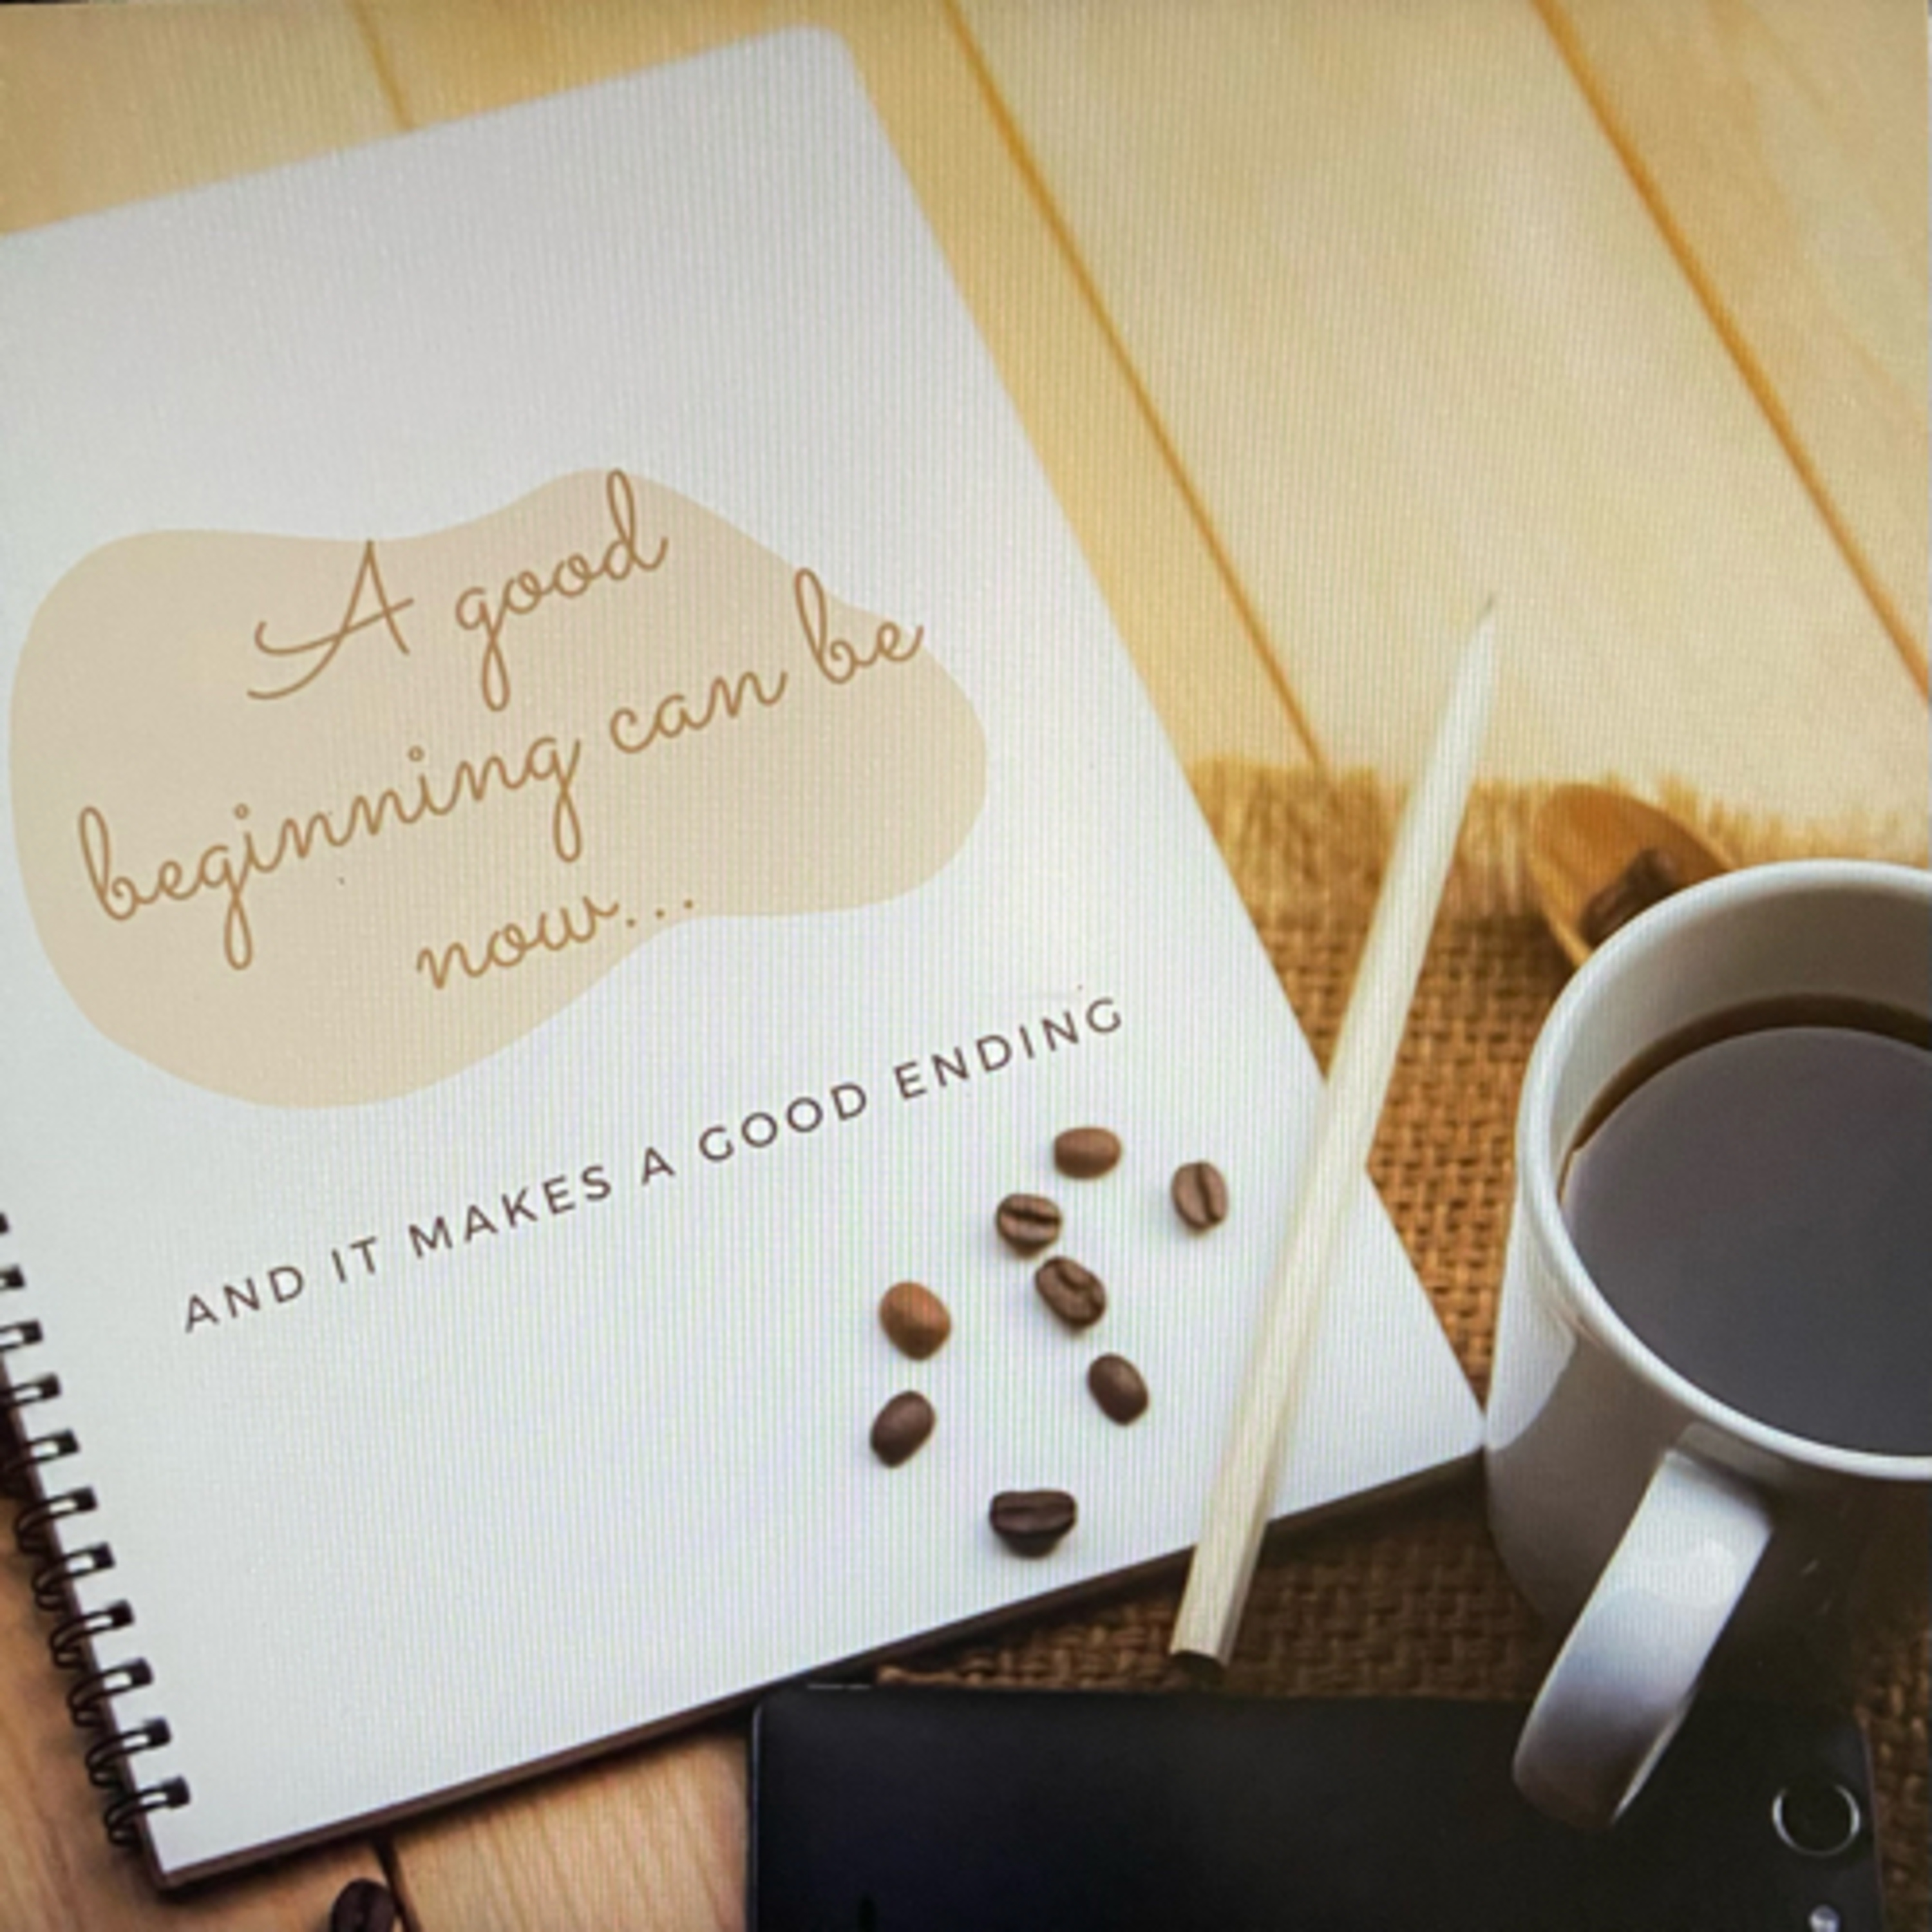 A good
beginning can be
now...
AND IT MAKES A GOOD ENDING